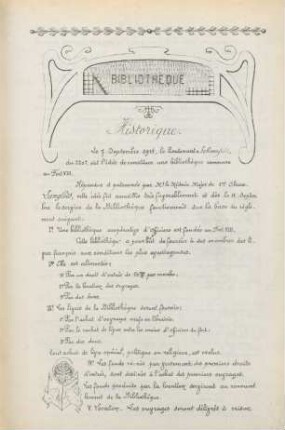 BIBLIOTHÈQUE
Historique.
Le 5 Septembre 1915, le Lieutenant
du eut l'idée de constituer une bibliothèque commune
au Fort VIII.
Répandue et présentée par Mr le Médecin Major de 1ère Classe
cette idée fut accueillie très favorablement et dès le 11 Septem-
bre le service de la Bibliothèque fonctionnait sur les bases du règle-
ment suivant:
I° Une bibliothèque coopérative d'officiers est fondée au Fort VIII.
Cette bibliothèque a pour but de fournir à des membres des
français aux conditions les plus avantageuses.
II° Elle est alimentée:
Par un droit d'entrée de par membre;
Par la location des ouvrages.
Par des dons.
III° Les livres de la Bibliothèque seront fournis:
Par l'achat d'ouvrages neufs en librairie.
Par le rachat de livres entre les mains d'officiers du fort.
Par des dons.
Tout achat de livre spécial, politique ou religieux, est exclus.
IV° Les fonds réunis par paiement des premiers droits
d'entrée, sont destinés à l'achat des premiers ouvrages.
Les fonds produits par la location serviront au renouvel-
lement de la Bibliothèque.
V° Location. Les ouvrages seront délivrés à raison